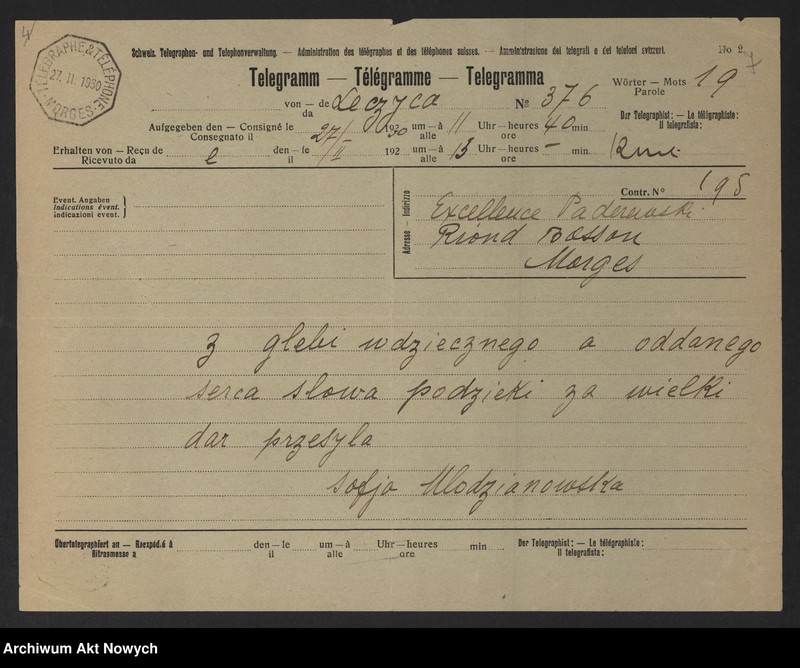 4
TELEGRAPHE & TELEPHONE
27. II. 1930
MORGES
Schweiz. Telegraphen- und Telephonverwaltung. — Administration des télégraphes et des téléphones suisses. — Amministrazione dei telegrafi e dei telefoni svizzeri.
No 2
Telegramm — Télégramme — Telegramma
Wörter — Mots 19
Parole
von — de Leczyca No 376
da
Der Telegraphist: — Le télégraphiste:
Il telegrafista:
Aufgegeben den — Consigné le 27/ 1930 um — à 11 Uhr — heures 40 min
Consegnato il alle ore
Erhalten von — Reçu de e den — le /II 192 um — à 13 Uhr — heures — min.
Ricevuto da il alle ore
Event. Angaben
Indications évent.
indicazioni event.
Contr. No 198
Adresse — Indirizzo
Excellence Paderewski
Riond Bosson
Morges
z glebi wdziecznego a oddanego
serca slowa podzieki za wielki
dar przesyla
sofja Mlodzianowska
Übertelegraphiert an — Réexpédié à den — le um — à Uhr — heures min Der Telegraphist: — Le télégraphiste:
Ritrasmesso a il alle ore Il telegrafista:
Archiwum Akt Nowych